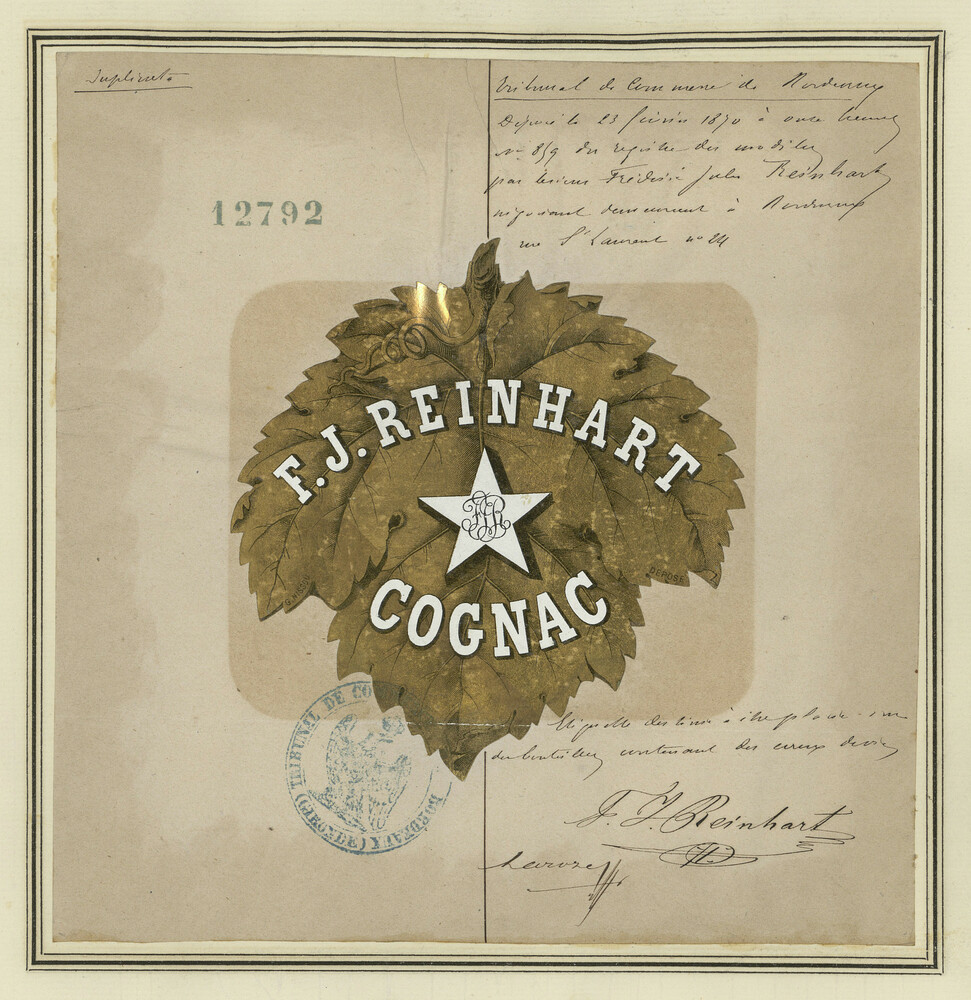 Duplicata
Tribunal de Commerce de Bordeaux
Déposé le 23 février 1870 à onze heures
N° 859 du registre des modèles
par lesieur Frédéric Jules Reinhart
négociant demeurant à Bordeaux
rue St Laurent n° 24
12792
F.J. REINHART
FJR
COGNAC
DÉPOSÉ
TRIBUNAL DE CO
BORDEAUX
(GIRONDE)
Etiquette destinée à être placée sur
des bouteilles contenant des eaux de vie
F. J. Reinhart